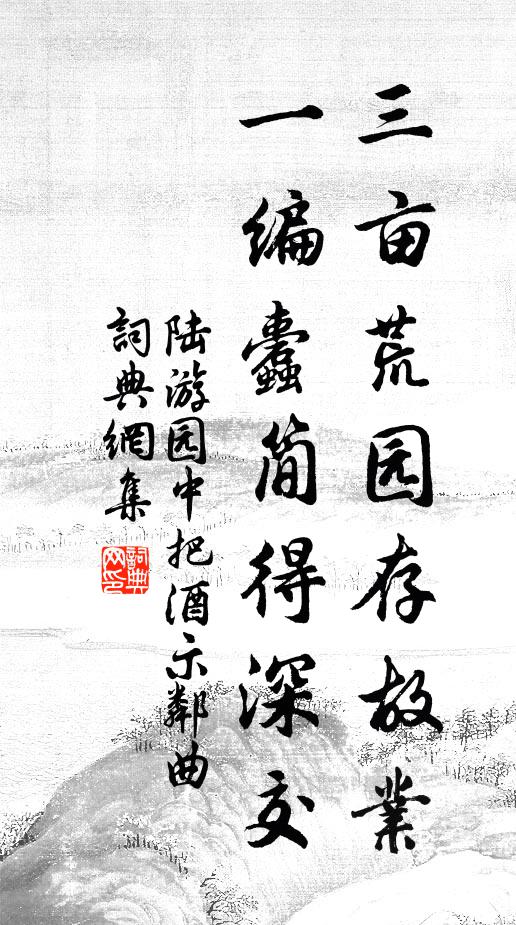 三亩荒园存故业
一编蠹简得深交
陆游园中把酒示鄰曲
詞典網集
詞典
网印